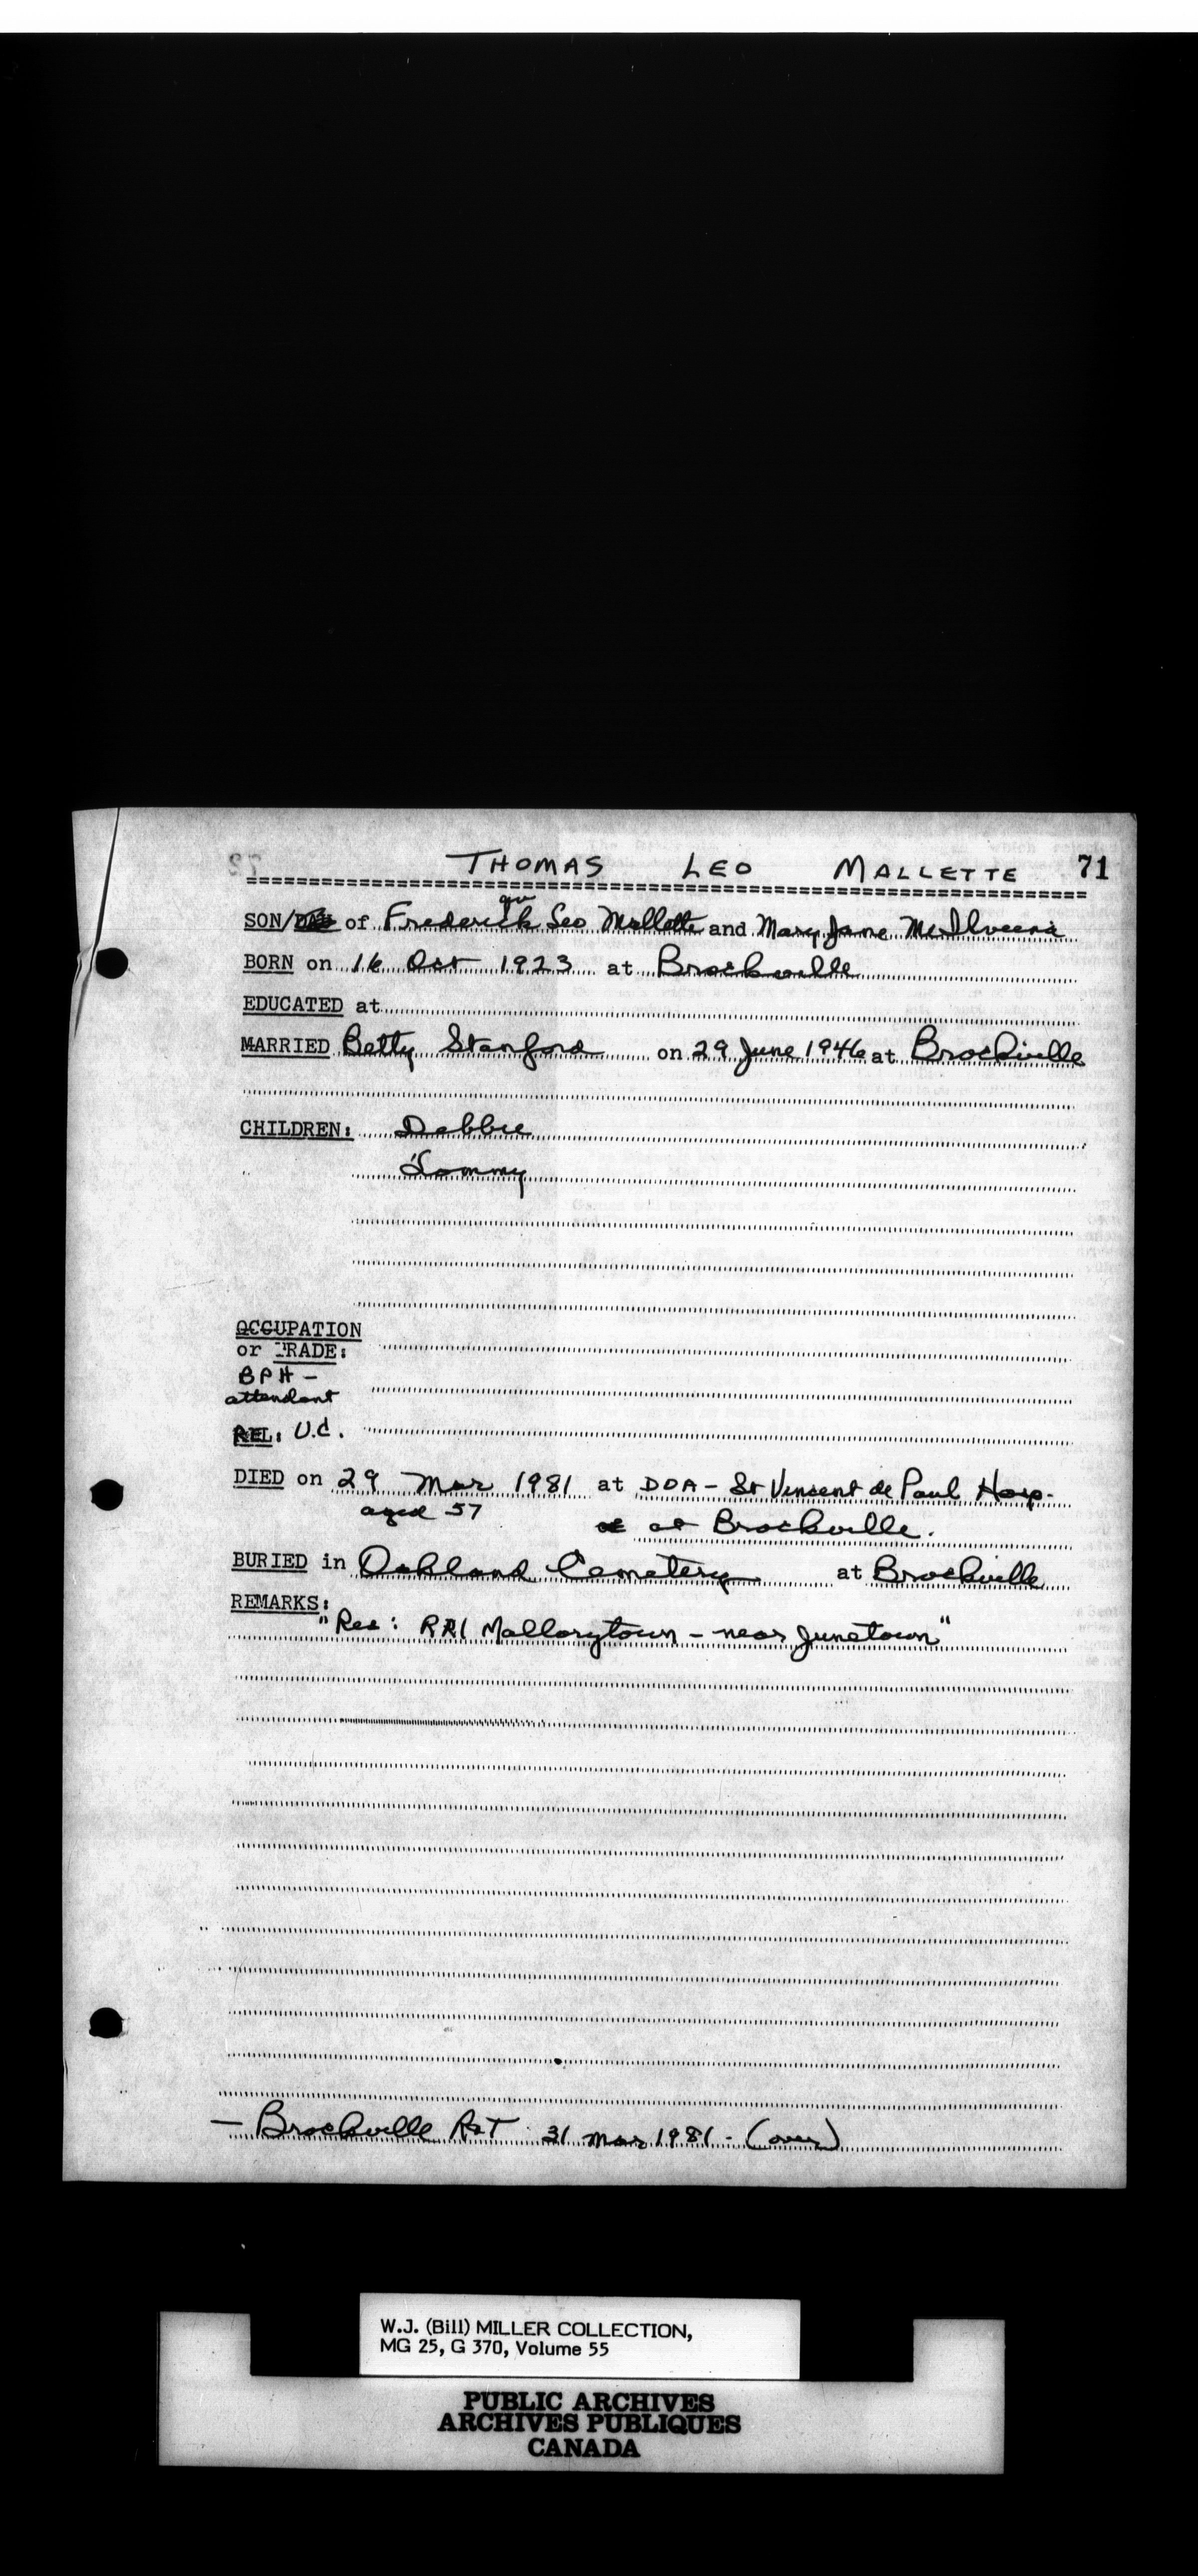 THOMAS LEO MALLETTE 71
SON/DAU of Frederick Leo Mallette and Mary Jane McIlveena
BORN on 16 Oct 1923 at Brockville
EDUCATED at
MARRIED Betty Stanford on 29 June 1946 at Brockville
CHILDREN: Debbie
Tommy
OCCUPATION
or TRADE:
BPH -
attendant
REL: U.C.
DIED on 29 Mar 1981 at DOA - St Vincent de Paul Hosp.
aged 57
at Brockville.
BURIED in Oakland Cemetery at Brockville
REMARKS:
"Res: RR1 Mallorytown - near Junetown"
- Brockville R&T 31 Mar 1981 - (over)
W.J. (Bill) MILLER COLLECTION,
MG 25, G 370, Volume 55
PUBLIC ARCHIVES
ARCHIVES PUBLIQUES
CANADA